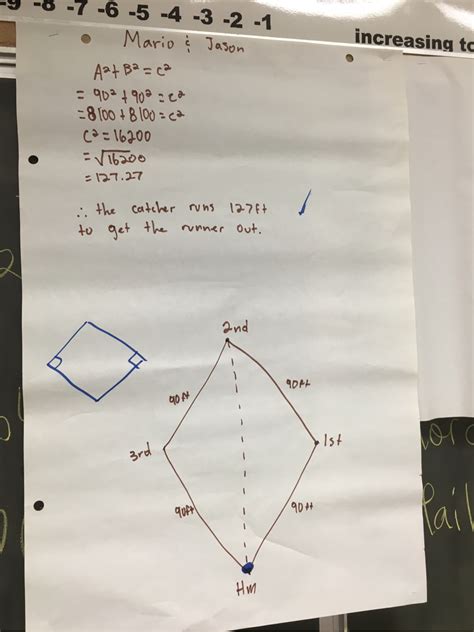 -9 -8 -7 -6 -5 -4 -3 -2 -1
increasing to
Mario & Jason
A²+B²=C²
= 90²+90²=c²
=8100+8100=c²
C²=16200
=√16200
=127.27
∴ the catcher runs 127ft
to get the runner out.
2nd
90ft
90ft
3rd
1st
90ft
90ft
Hm